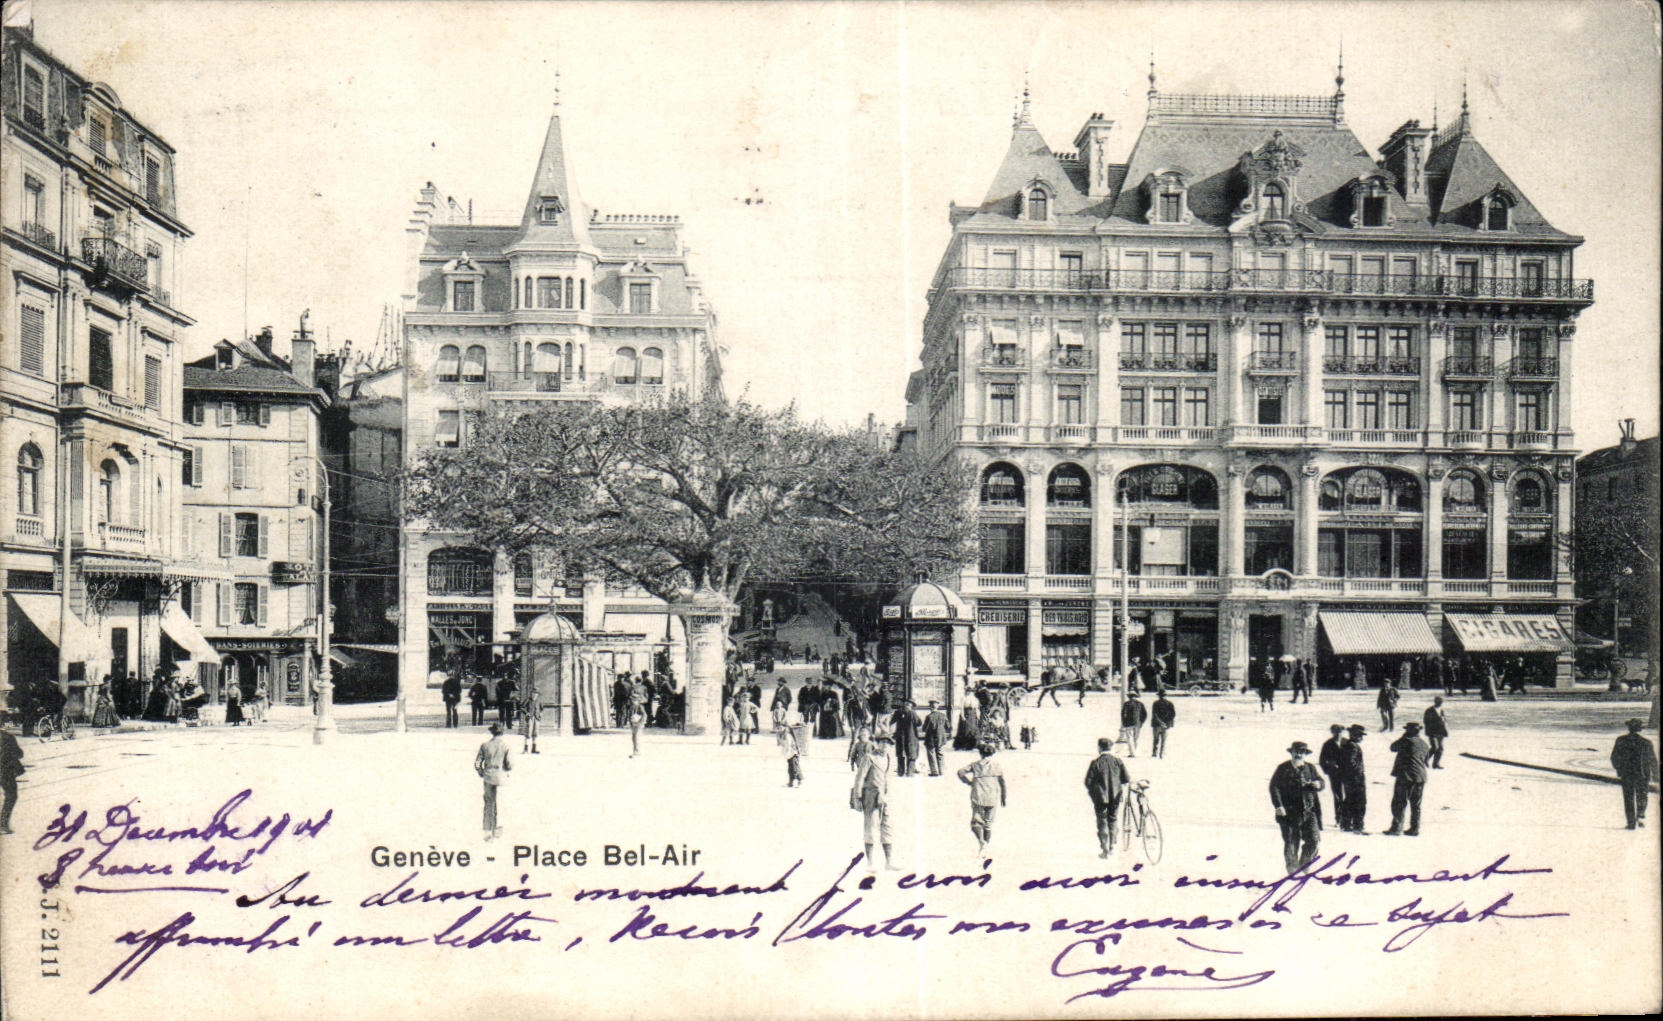 MODES
GLASER
GLASER
GLASER
ARTICLES VOYAGE
MALLES JONC
COSMOS
GLACES
CHEMISERIE
CIGARES
31 Décembre 1901
8 heures soir
Genève - Place Bel-Air
Au dernier moment je crois avoir insuffisament
affranchi ma lettre, Reçois toutes mes excuses à ce sujet
Eugène
J.J. 2111